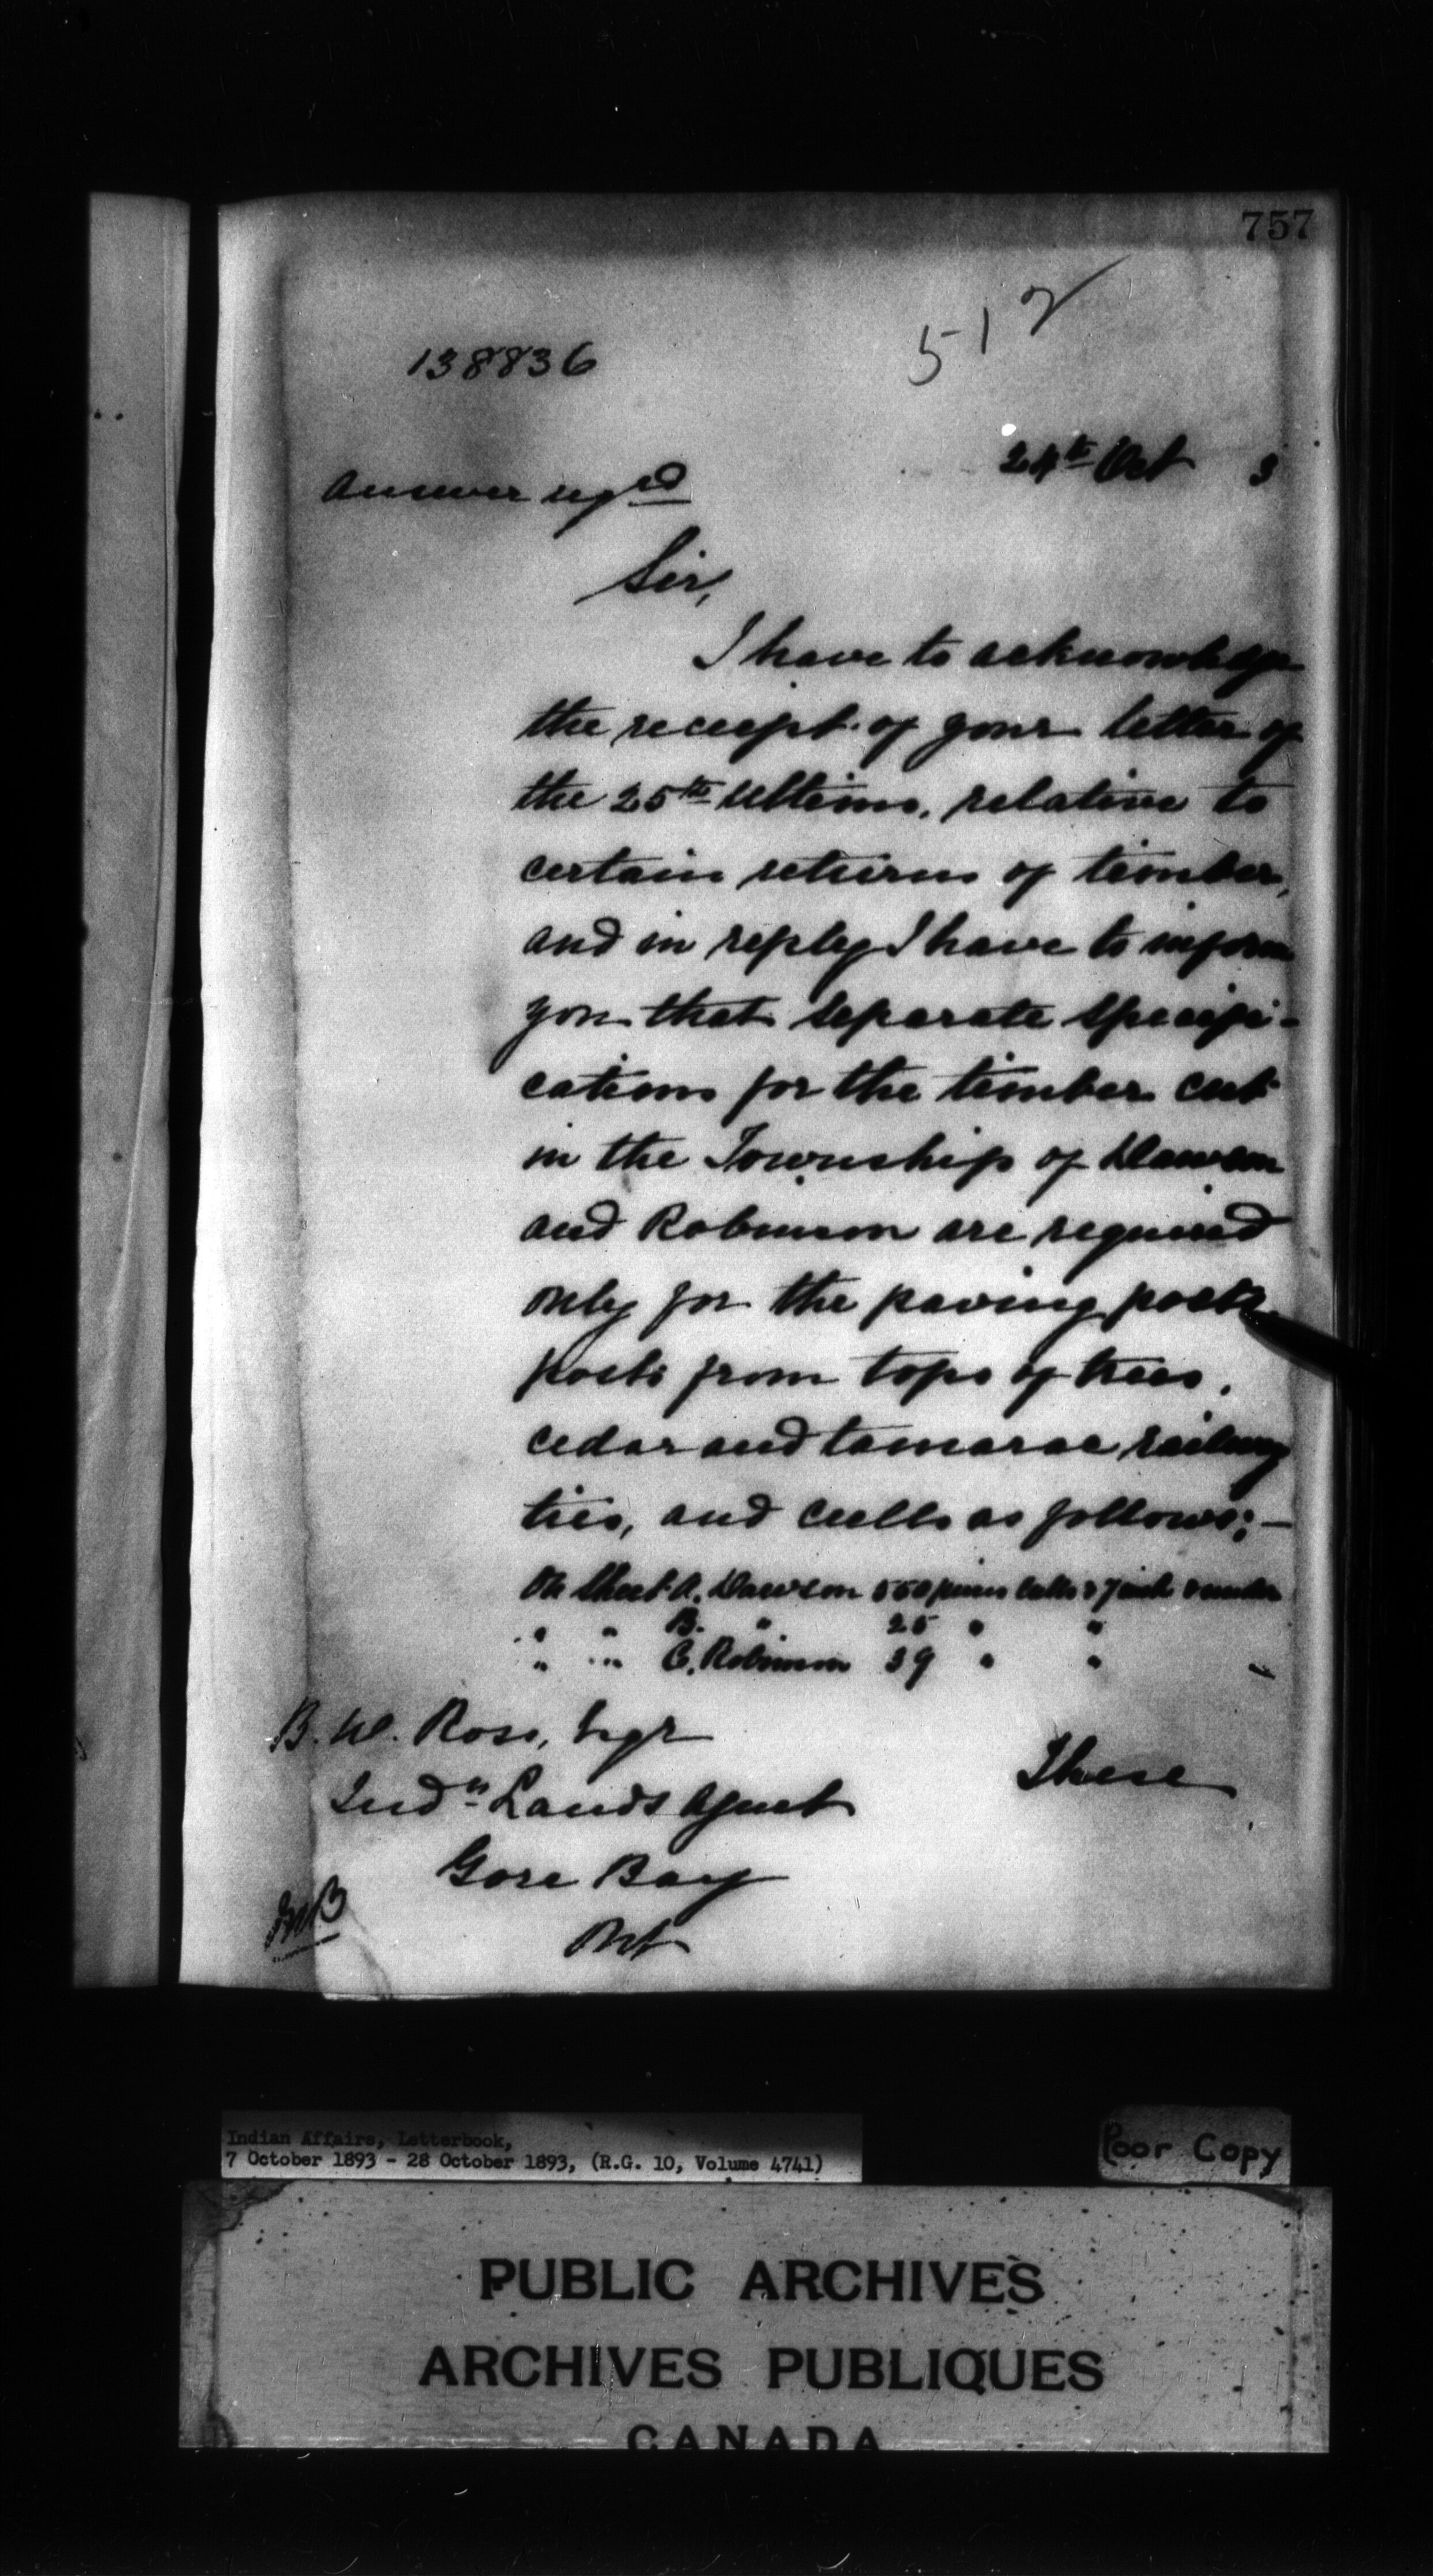 757
512
138836
24th Oct 3
Answer reqrd
Sir,
I have to acknowledge
the receipt of your letter of
the 25th Ultimo, relative to
certain returns of timber,
and in reply I have to inform
you that separate specifi-
cations for the timber cut
in the Township of Dawson
and Robinson are required
only for the paving posts
posts from tops of trees,
cedar and tamarac railway
ties, and culls as follows;-
On Sheet A. Dawson 550 pieces culls 7 inch & under
" " B. " 25 " "
" " C. Robinson 39 " "
B. W. Ross, Esqr
These
Indn Lands Agent
Gore Bay
Ont
Indian Affairs, Letterbook,
7 October 1893 - 28 October 1893, (R.G. 10, Volume 4741)
Poor Copy
PUBLIC ARCHIVES
ARCHIVES PUBLIQUES
CANADA